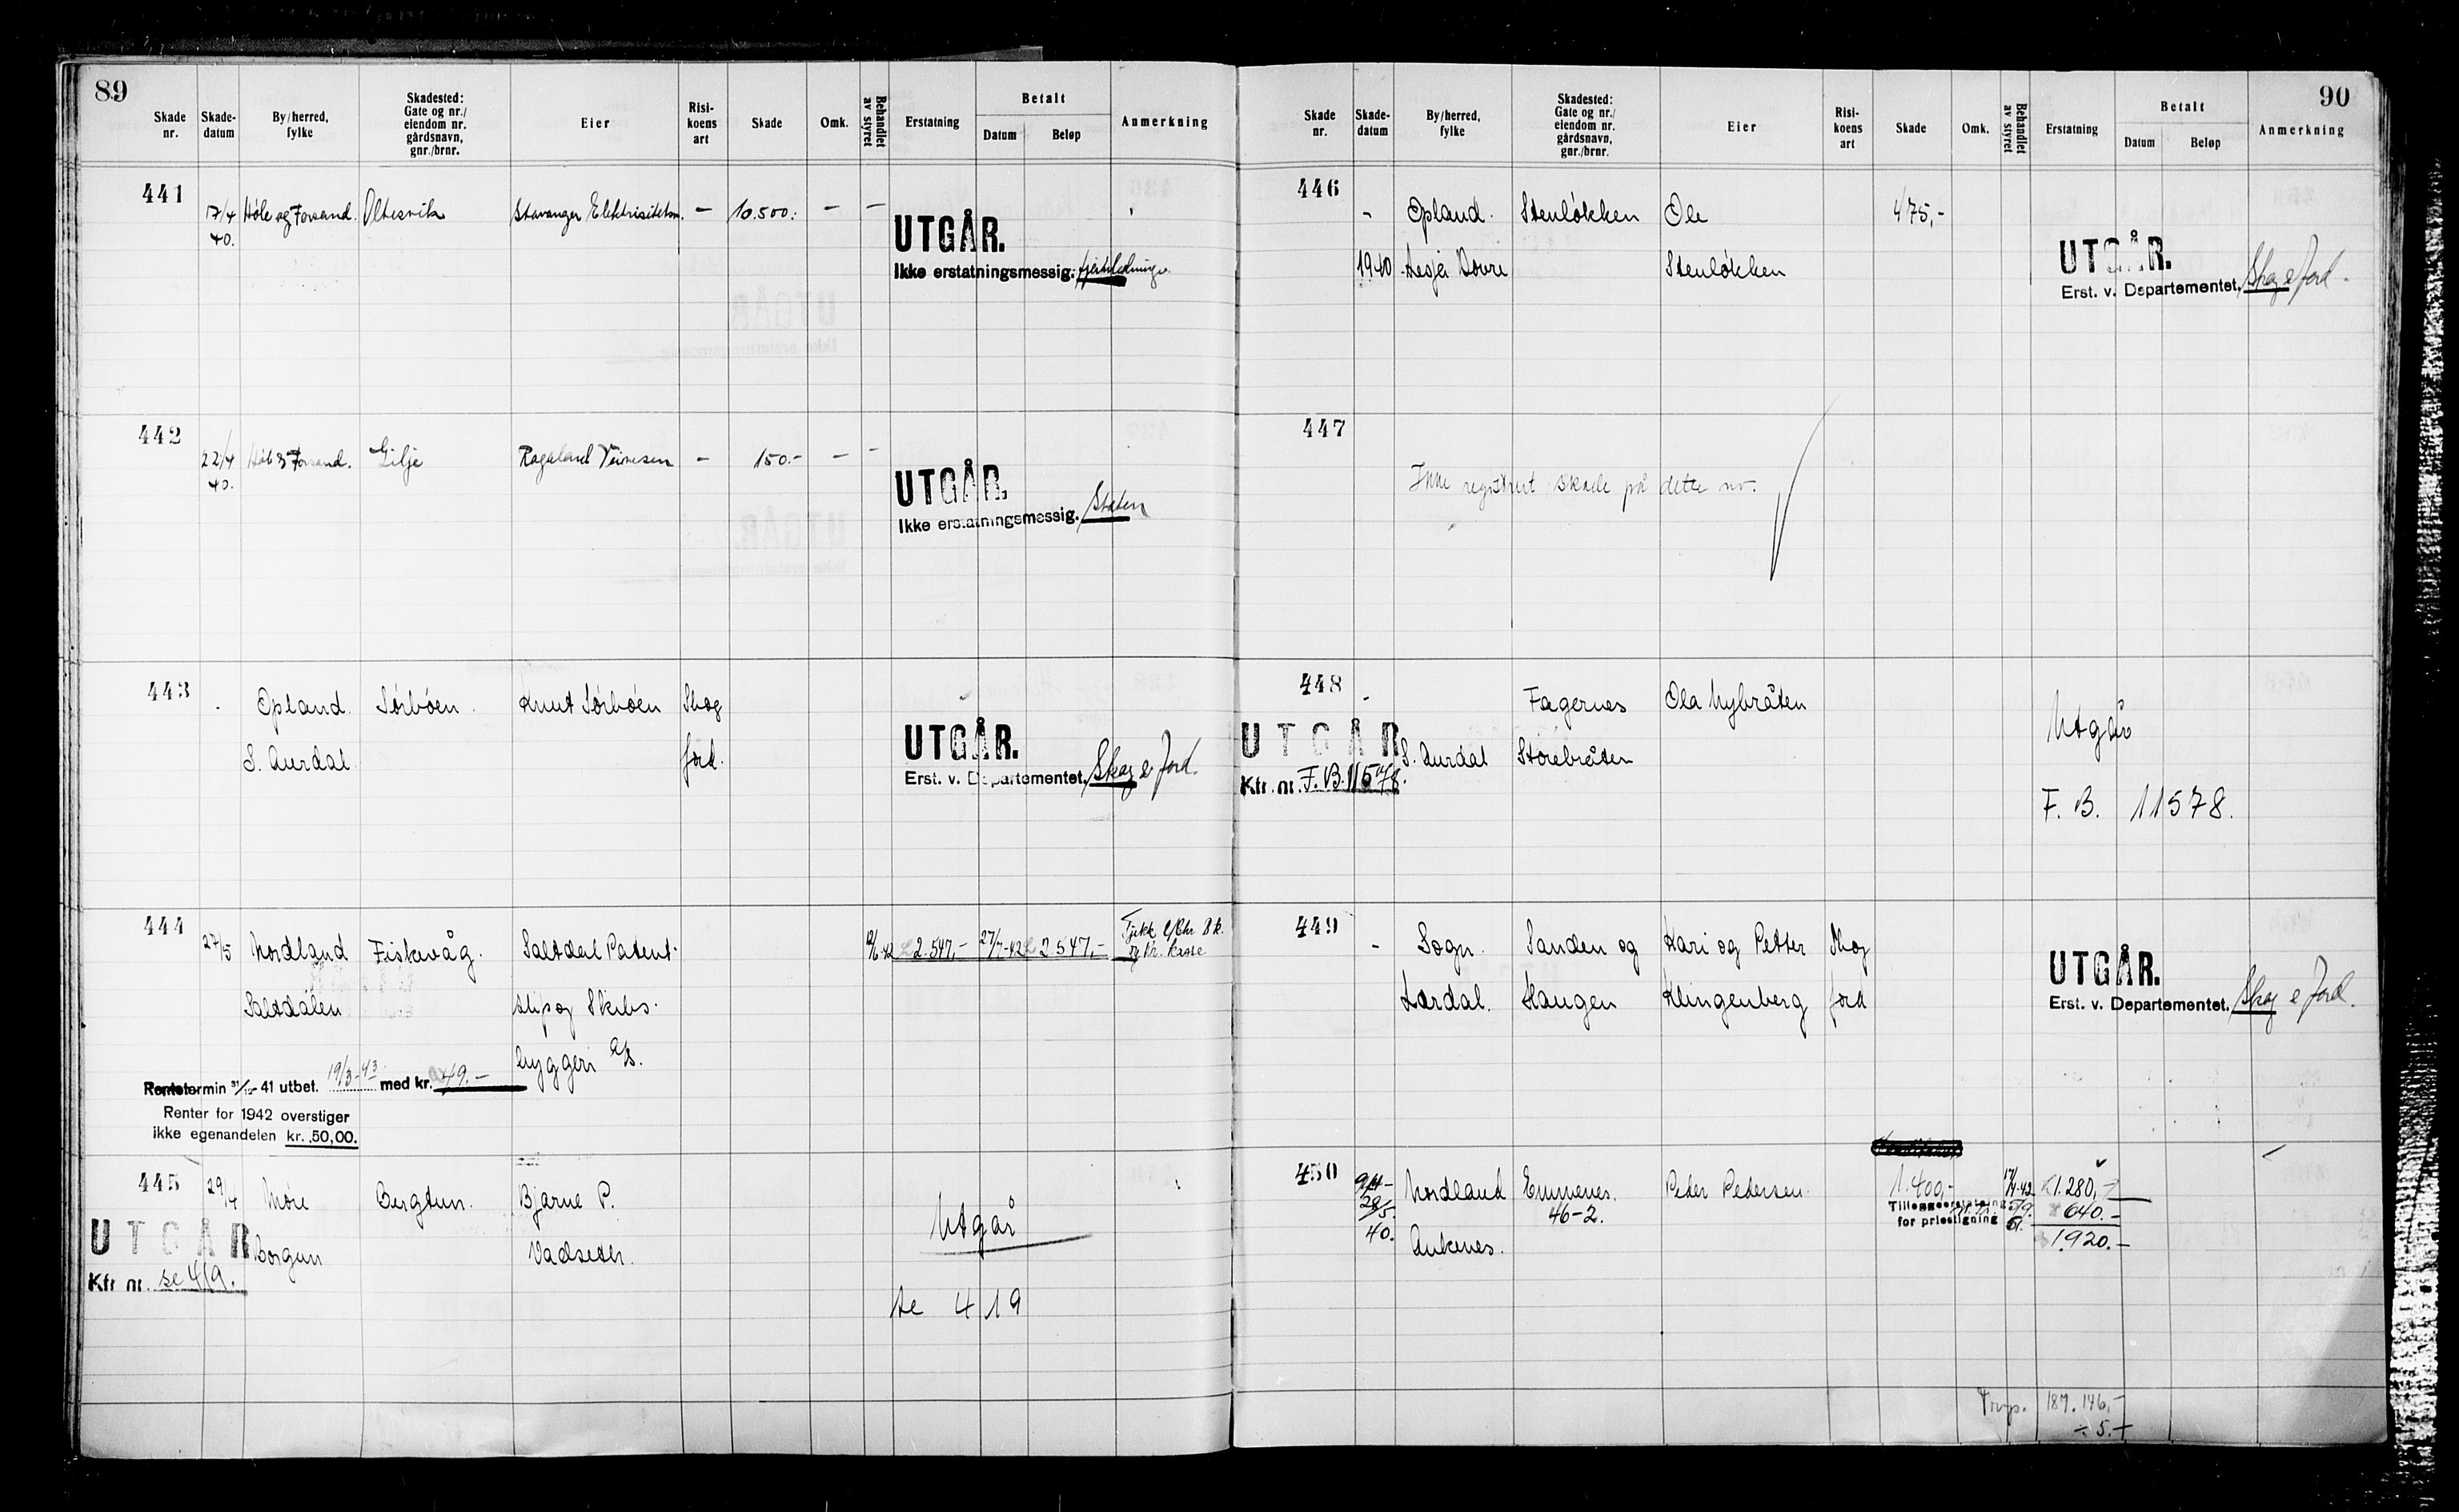 89
Skade nr. Skade-datum By/herred, fylke Skadested: Gate og nr./ eiendom nr. gårdsnavn, gnr./brnr. Eier Risi-koens art Skade Omk. Behandlet av styret Erstatning Betalt Datum Beløp Anmerkning
441 17/4 Høle og Forsand. Oltesvik Stavanger Elektrisitetsv. — 10.500: — —
40.
UTGÅR.
Ikke erstatningsmessig.
442 22/4 Forsand. Gilje Rogaland Veivesen — 150.- — —
40.
UTGÅR.
Ikke erstatningsmessig. Staten
443 - Opland. Sørbøen. Knut Sørbøen Skog
S. Aurdal. jord.
UTGÅR.
Erst. v. Departementet. Skog e jord.
444 27/5 Nordland Fiskevåg. Saltdal Patent- 2.547,- 27/7-42 2.547,-
Saltdalen slip og Skibs- og Kr. kasse
byggeri A/S.
Rentetermin 31/12- 41 utbet. 19/3-43 med kr. 49.-
Renter for 1942 overstiger
ikke egenandelen kr. 50,00.
445 29/4 Møre Bergtun. Bjarne P. Utgår
UTGÅR Borgun Vadseth.
Kfr. nr. se 419. se 419
90
Skade nr. Skade-datum By/herred, fylke Skadested: Gate og nr./ eiendom nr. gårdsnavn, gnr./brnr. Eier Risi-koens art Skade Omk. Behandlet av styret Erstatning Betalt Datum Beløp Anmerkning
446 - Opland. Stenløkken Ole 475,-
1940 Dovre Stenløkken
UTGÅR.
Erst. v. Departementet. Skog e jord.
447
Ikke registrert skade på dette nr.
448 - Fagernes Ola Nybråten Utgår
UTGÅR S. Aurdal Storebråten
Kfr. nr. F.B. 11578. F. B. 11578.
449 - Sogn. Sanden og Kari og Petter Skog
Lærdal. Haugen Klingenberg jord
UTGÅR.
Erst. v. Departementet. Skog e jord.
450 9/4- Nordland Emmenes. Peder Pedersen. 1.400,- 17/4-42 1.280,-
28/5. 46-2. Tilleggserstatning 640.-
40. Ankenes. for prisstigning 1.920.-
187.146,-
÷ 5.-